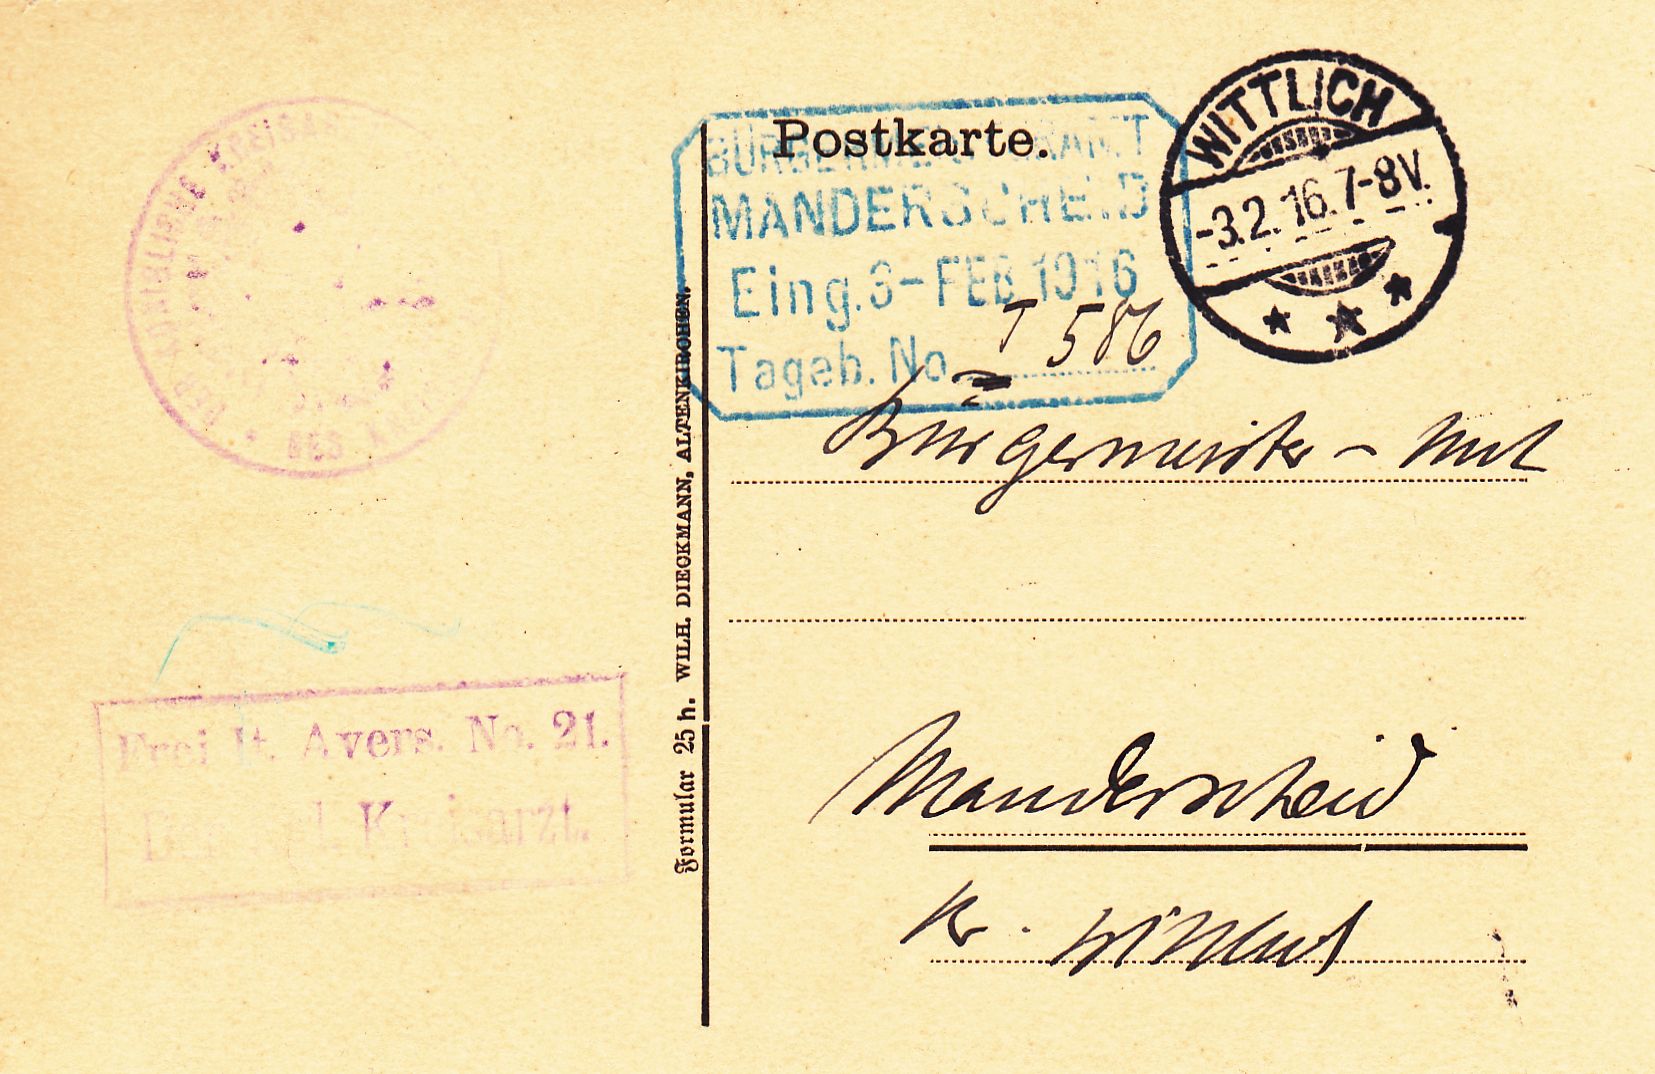 Postkarte.
WITTLICH
-3.2.16.7-8V.
BÜRGERMEISTERAMT
MANDERSCHEID
Eing. 3-FEB 1916
Tageb. No. T 586
Bürgermeister-Amt
Manderscheid
Kr. Wittlich
Formular 25 h. WILH. DIECKMANN, ALTENKIRCHEN.
DER KÖNIGLICHE
DES
Frei lt. Avers. No. 21.
Kreisarzt.